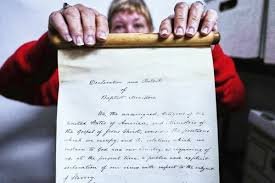 Declaration and Protest
of
Baptist Ministers
We the undersigned, Citizens of the
United States of America, and Ministers
of the Gospel of Jesus Christ, owe to the positions
which we occupy, and the relations which we
sustain to God and our
at the present time, a public and explicit
declaration of our views with respect to the subject
of Slavery.